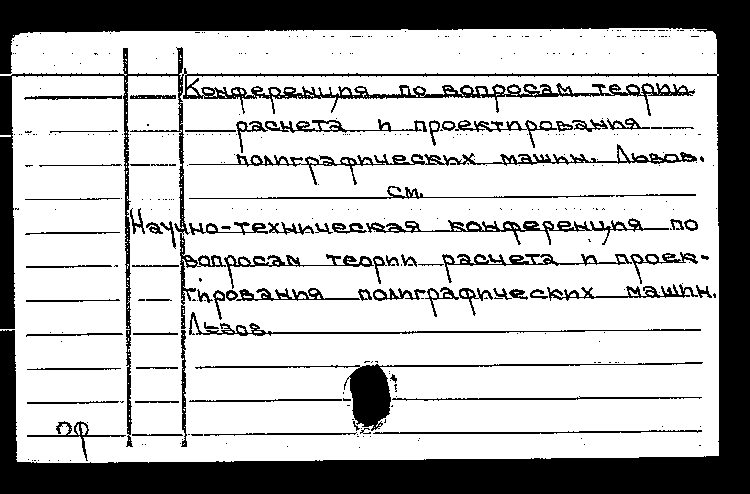 Конференция по вопросам теории
расчета и проектирования
полиграфических машин. Львов.
см.
Научно-техническая конференция по
вопросам теории расчета и проек-
тирования полиграфических машин.
Львов.
ОФ